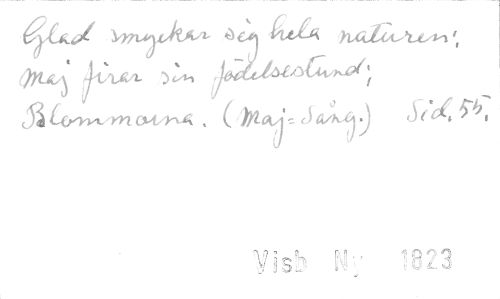 Glad smyckar sig hela naturen;
Maj firar sin födelsestund;
Blommorna. (Maj=Sång.) Sid. 55.
Visb Ny 1823